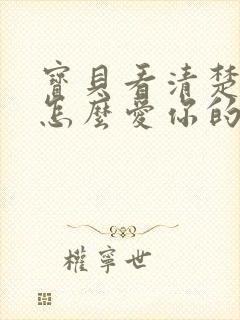 寶貝看清楚
怎麼愛你的
權寧世